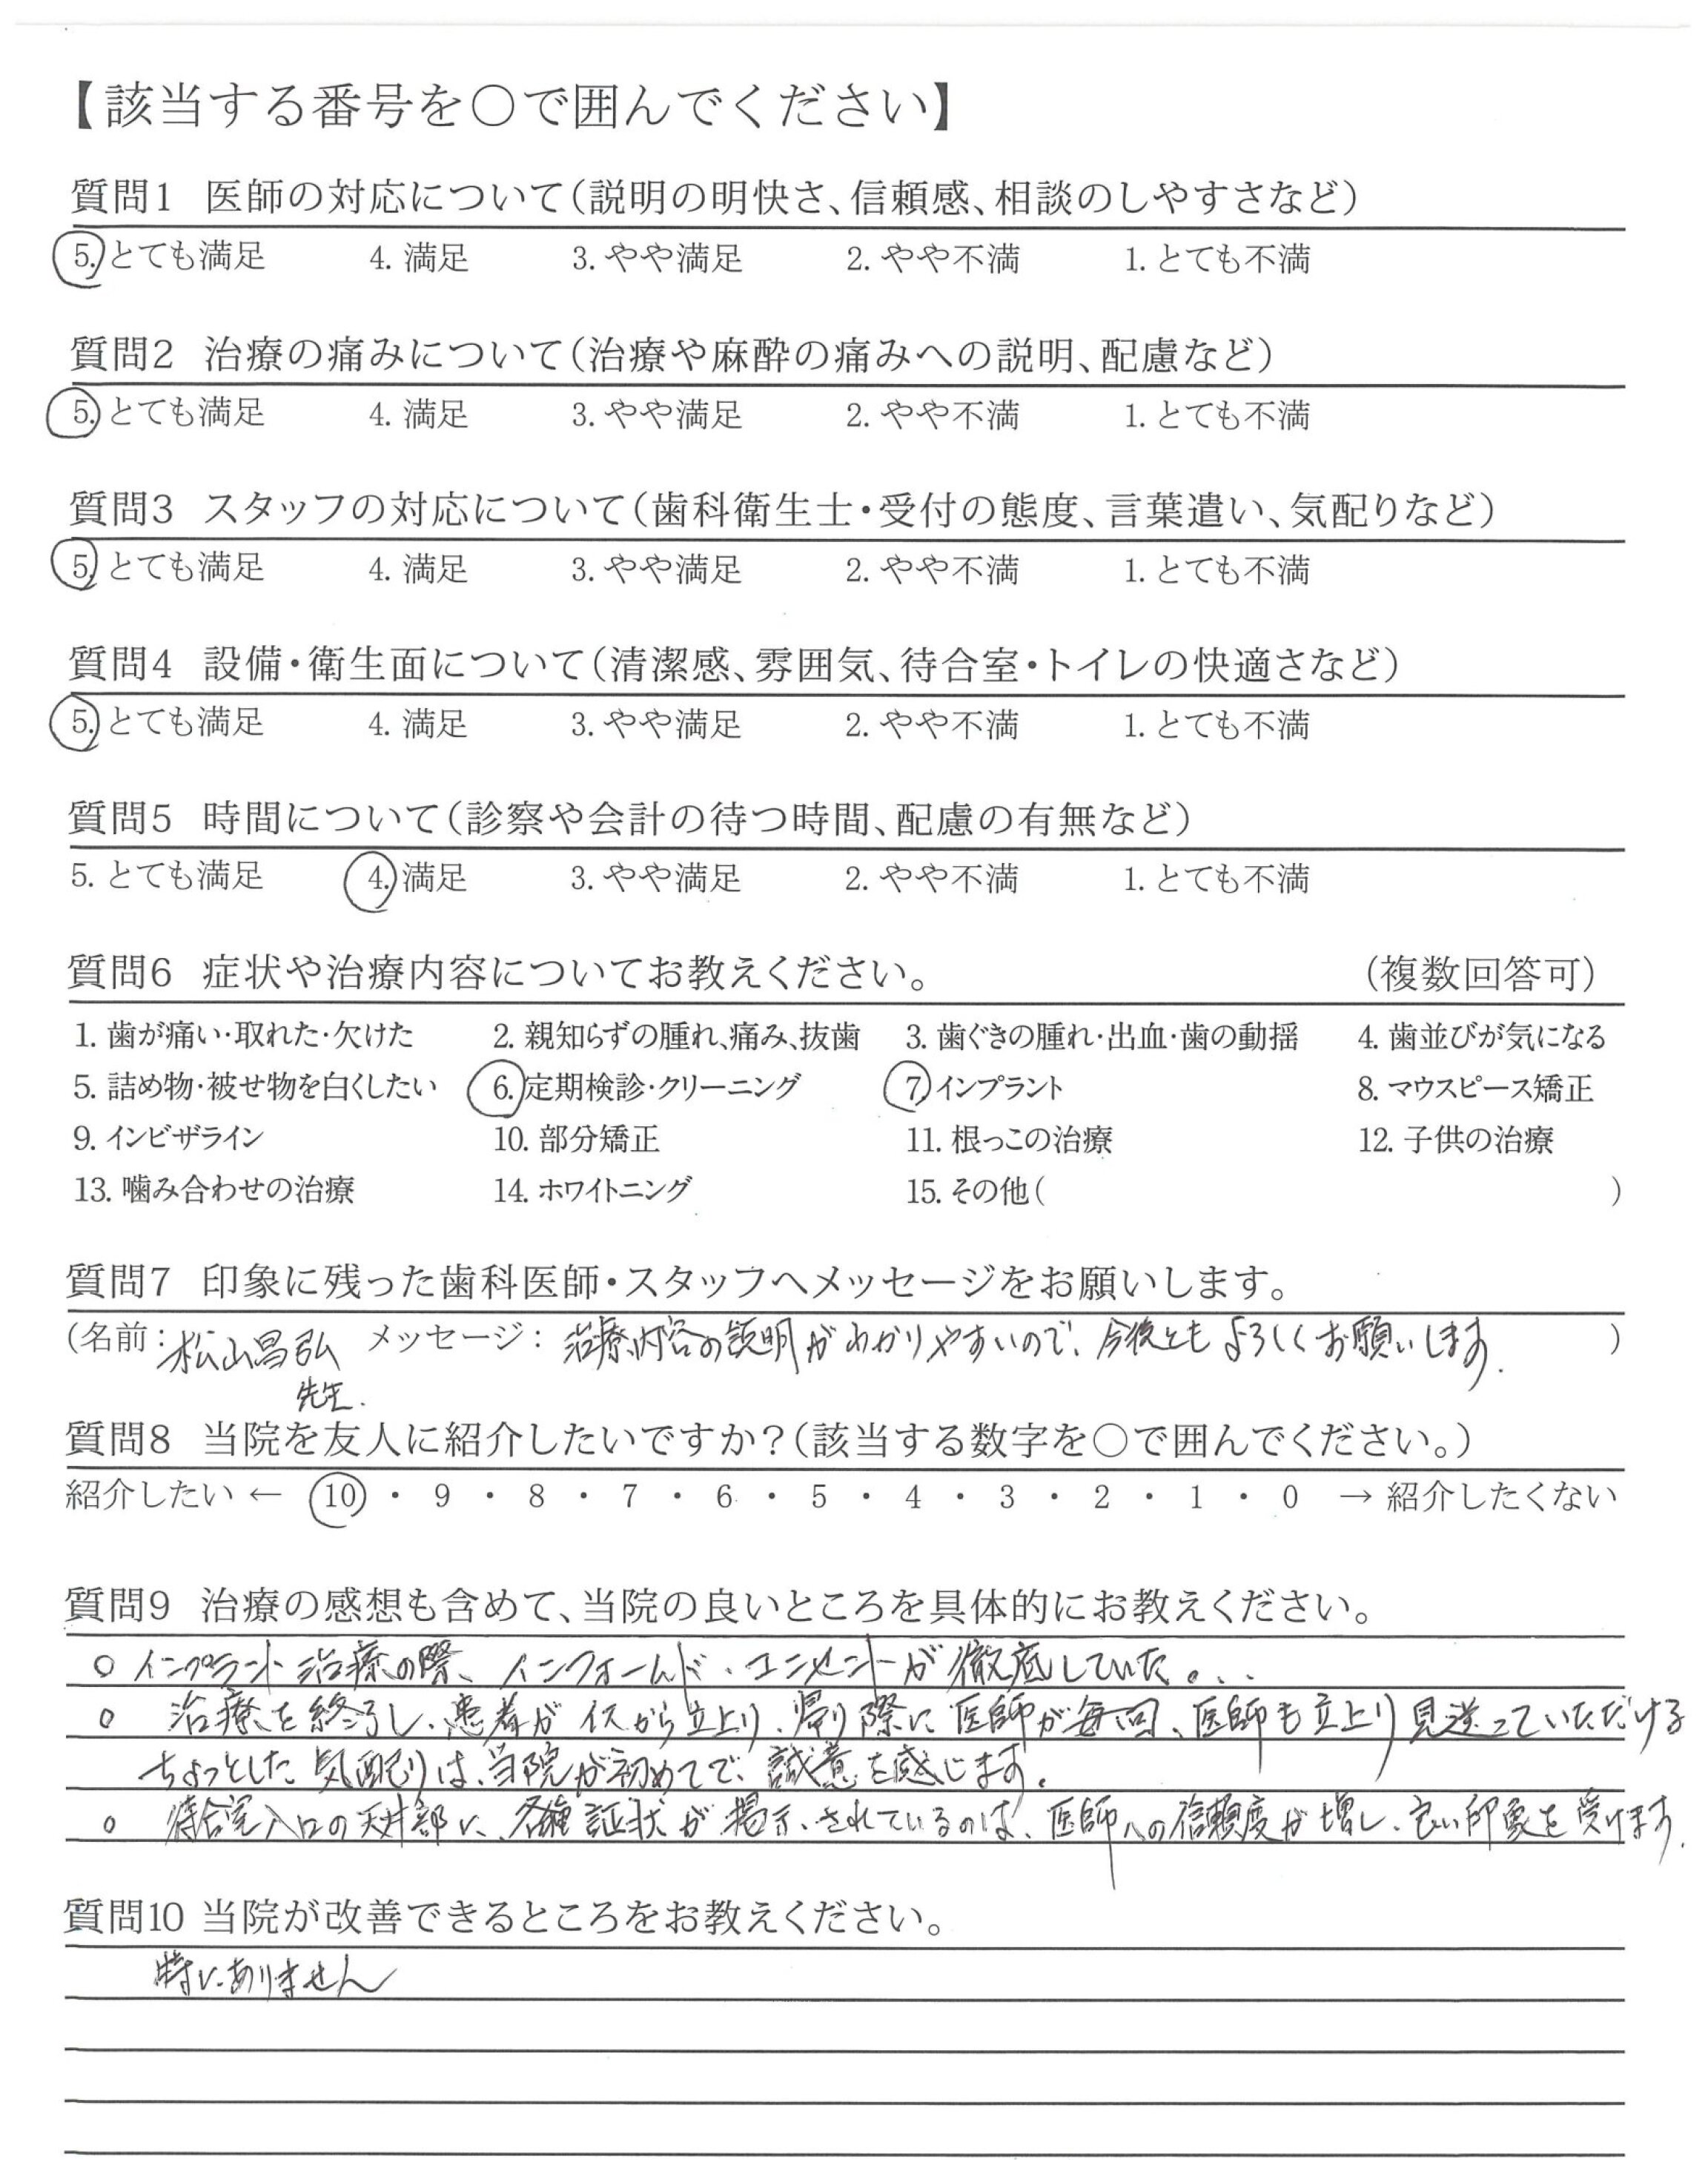 【該当する番号を○で囲んでください】
質問1 医師の対応について(説明の明快さ、信頼感、相談のしやすさなど)
5. とても満足 4. 満足 3. やや満足 2. やや不満 1. とても不満
質問2 治療の痛みについて(治療や麻酔の痛みへの説明、配慮など)
5. とても満足 4. 満足 3. やや満足 2. やや不満 1. とても不満
質問3 スタッフの対応について(歯科衛生士・受付の態度、言葉遣い、気配りなど)
5. とても満足 4. 満足 3. やや満足 2. やや不満 1. とても不満
質問4 設備・衛生面について(清潔感、雰囲気、待合室・トイレの快適さなど)
5. とても満足 4. 満足 3. やや満足 2. やや不満 1. とても不満
質問5 時間について(診察や会計の待つ時間、配慮の有無など)
5. とても満足 4. 満足 3. やや満足 2. やや不満 1. とても不満
質問6 症状や治療内容についてお教えください。 (複数回答可)
1. 歯が痛い・取れた・欠けた 2. 親知らずの腫れ、痛み、抜歯 3. 歯ぐきの腫れ・出血・歯の動揺 4. 歯並びが気になる
5. 詰め物・被せ物を白くしたい 6. 定期検診・クリーニング 7. インプラント 8. マウスピース矯正
9. インビザライン 10. 部分矯正 11. 根っこの治療 12. 子供の治療
13. 噛み合わせの治療 14. ホワイトニング 15. その他( )
質問7 印象に残った歯科医師・スタッフへメッセージをお願いします。
(名前: 松山昌弘 メッセージ: 治療内容の説明がわかりやすいので、今後ともよろしくお願いします. )
先生.
質問8 当院を友人に紹介したいですか?(該当する数字を○で囲んでください。)
紹介したい ← 10 ・ 9 ・ 8 ・ 7 ・ 6 ・ 5 ・ 4 ・ 3 ・ 2 ・ 1 ・ 0 → 紹介したくない
質問9 治療の感想も含めて、当院の良いところを具体的にお教えください。
○ インプラント治療の際、インフォームド・コンセントが徹底していた。
○ 治療を終了し、患者がイスから立上り、帰り際に医師が毎回、医師も立上り見送っていただける
ちょっとした気配りは、当院が初めてで、誠意を感じます。
○ 待合室入口の天井部に、各種証状が掲示されているのは、医師への信頼度が増し、良い印象を受けます.
質問10 当院が改善できるところをお教えください。
特にありません